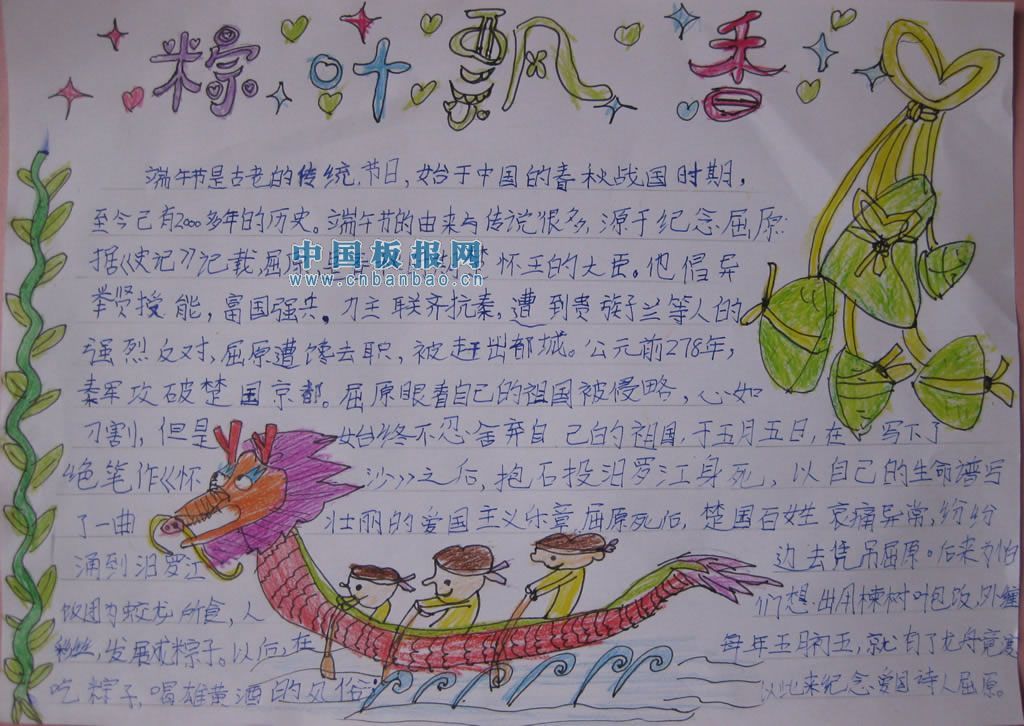 粽叶飘香
端午节是古老的传统节日,始于中国的春秋战国时期,
至今已有2000多年的历史。端午节的由来与传说很多,源于纪念屈原
中国板报网
www.cnbanbao.cn
据《史记》记载,屈原 怀王的大臣。他倡导
举贤授能,富国强兵,力主联齐抗秦,遭到贵族子兰等人的
强烈反对,屈原遭馋去职,被赶出都城。公元前278年,
秦军攻破楚国京都。屈原眼看自己的祖国被侵略,心如
刀割,但是始终不忍舍弃自己的祖国,于五月五日,在写下了
绝笔作《怀沙》之后,抱石投汨罗江身死,以自己的生命谱写
了一曲壮丽的爱国主义乐章,屈原死后,楚国百姓哀痛异常,纷纷
涌到汨罗江边去凭吊屈原。后来为怕
饭团为蛟龙所食,人们想出用楝树叶包饭,外缠
彩丝,发展成粽子。以后,在每年五月初五,就有了龙舟竞渡
吃粽子,喝雄黄酒的风俗;以此来纪念爱国诗人屈原。